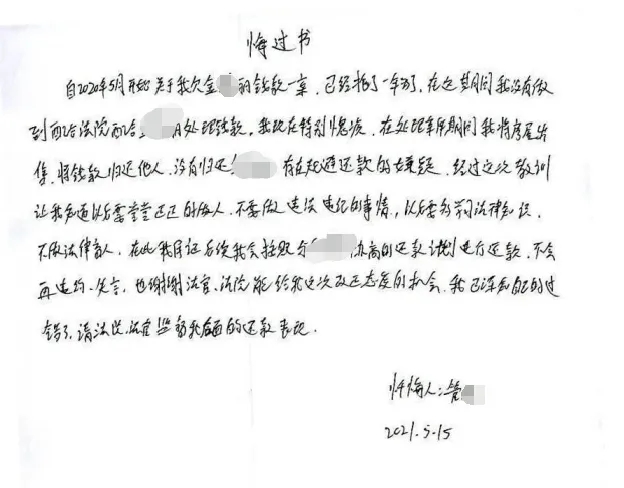 悔过书
自2020年5月开始关于我欠金 钱款一案,已经拖了一年多了,在这其期间我没有做
到配合法院配合 处理钱款,我现在特别愧疚,在处理案件期间我将房屋出
售,将钱款归还他人,没有归还 有在规避还款的嫌疑,经过这次教训
让我知道以后要堂堂正正的做人,不要做违法违纪的事情,以后要多学习法律知识,
不做法律盲人,在此我保证后续我会按照 协商的还款计划进行还款,不会
再违约、失言,也谢谢法官、法院能给我这次改正态度的机会,我已深知自己的过
错了,请法院、法官监督我后面的还款表现.
忏悔人:管
2021.5.15